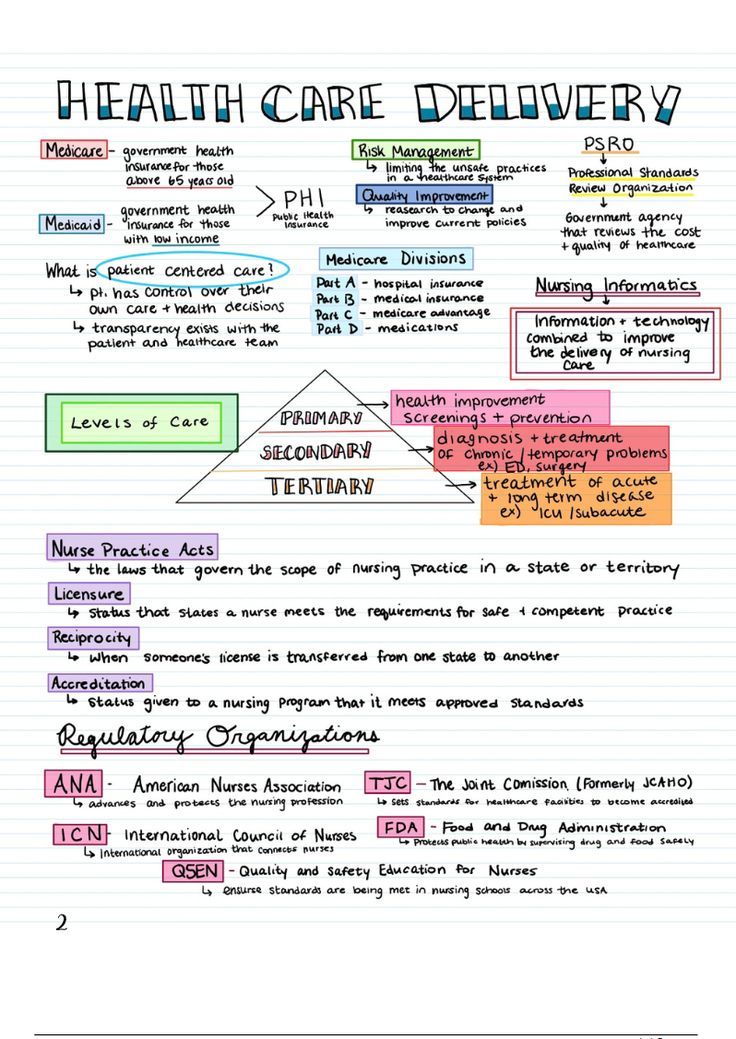 HEALTH CARE DELIVERY
Medicare - government health
insurance for those
above 65 years old
Medicaid - government health
insurance for those
with low income
> PHI
Public Health
Insurance
Risk Management
↳ limiting the unsafe practices
in a healthcare system
Quality Improvement
↳ reasearch to change and
improve current policies
PSRO
Professional Standards
Review Organization
Government agency
that reviews the cost
+ quality of healthcare
What is patient centered care?
↳ pt. has control over their
own care + health decisions
↳ transparency exists with the
patient and healthcare team
Medicare Divisions
Part A - hospital insurance
Part B - medical insurance
Part C - medicare advantage
Part D - medications
Nursing Informatics
Information + technology
combined to improve
the delivery of nursing
care
Levels of Care
PRIMARY
health improvement
screenings + prevention
SECONDARY
diagnosis + treatment
of chronic/temporary problems
ex) ED, surgery
TERTIARY
treatment of acute
+ long term disease
ex) ICU/subacute
Nurse Practice Acts
↳ the laws that govern the scope of nursing practice in a state or territory
Licensure
↳ status that states a nurse meets the requirements for safe + competent practice
Reciprocity
↳ when someone's license is transferred from one state to another
Accreditation
↳ status given to a nursing program that it meets approved standards
Regulatory Organizations
ANA - American Nurses Association
↳ advances and protects the nursing profession
TJC - The Joint Comission (Formerly JCAHO)
↳ sets standards for healthcare facilities to become accredited
ICN - International Council of Nurses
↳ International organization that connects nurses
FDA - Food and Drug Administration
↳ Protects public health by supervising drug and food safety
QSEN - Quality and Safety Education for Nurses
↳ enusrse standards are being met in nursing schools across the USA
2